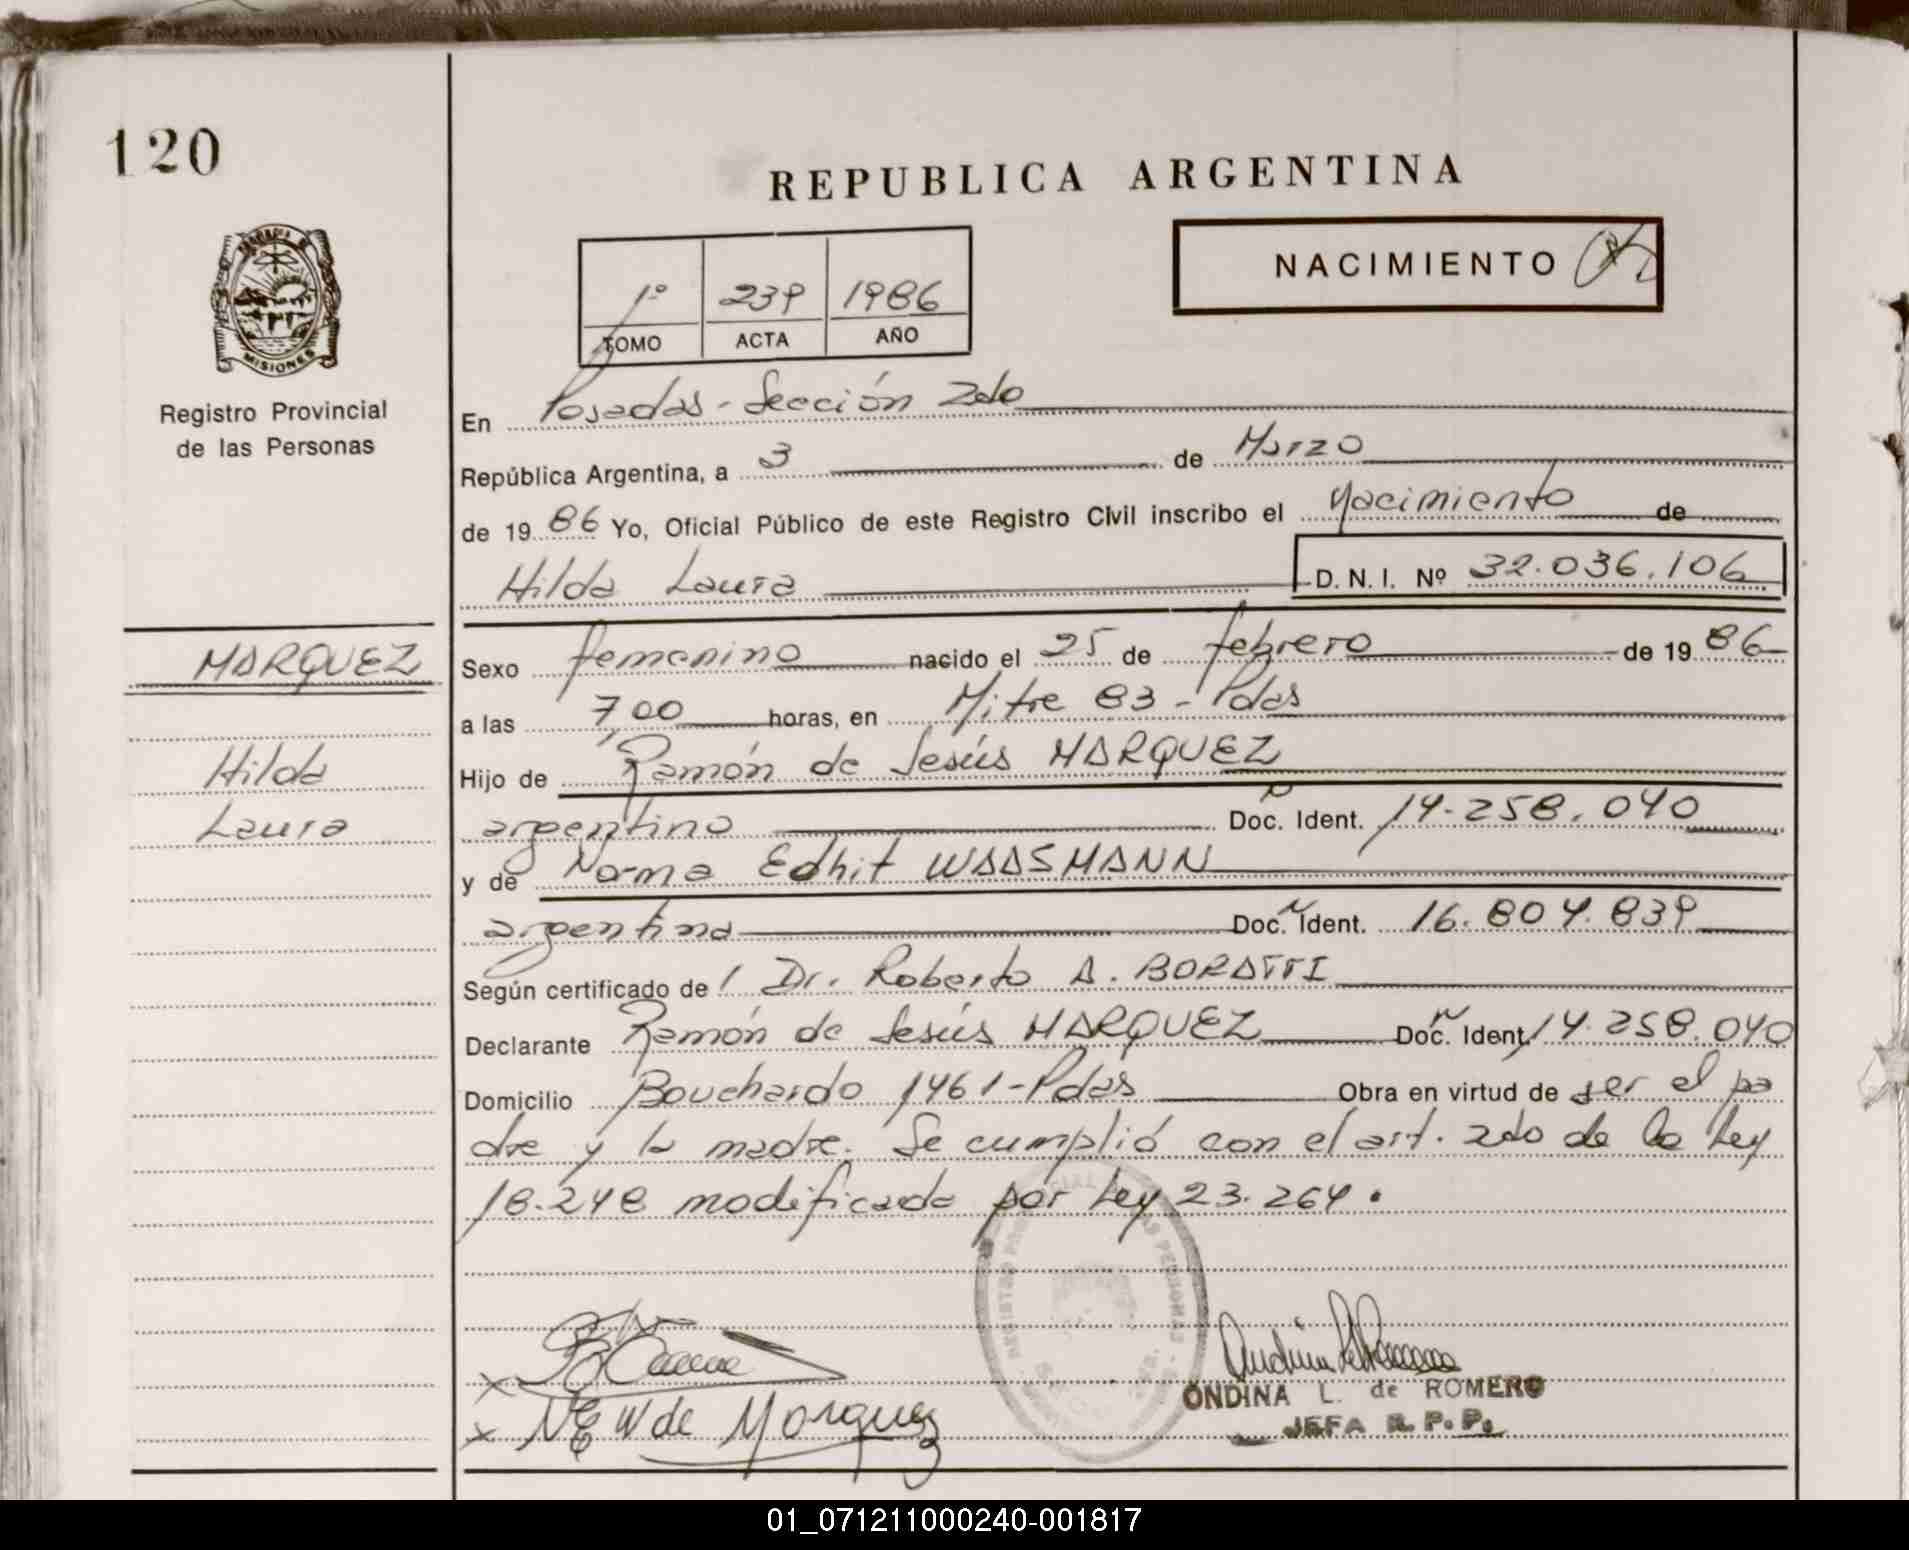 120
REPUBLICA ARGENTINA
NACIMIENTO
1º 239 1986
TOMO ACTA AÑO
PROVINCIA DE
MISIONES
Registro Provincial
de las Personas
En Posadas - Sección 2da
República Argentina, a 3 de Marzo
de 1986 Yo, Oficial Público de este Registro Civil inscribo el Nacimiento de
Hilda Laura D. N. I. Nº 32.036.106
MARQUEZ
Hilda
Laura
Sexo femenino nacido el 25 de febrero de 1986
a las 7,00 horas, en Mitre 83 - Pdas
Hijo de Ramón de Jesús MARQUEZ
argentino Doc. Ident. 14.258.040
y de Norma Edhit WAASMANN
argentina Doc. Ident. 16.804.839
Según certificado de Dr. Roberto A. BORATTI
Declarante Ramón de Jesús MARQUEZ Doc. Ident. 14.258.040
Domicilio Bouchardo 1461 - Pdas Obra en virtud de ser el pa
dre y la madre. Se cumplió con el art. 2do de la Ley
18.248 modificada por Ley 23.264.
x N E W de Marquez
ONDINA L. de ROMERO
JEFA R. P. P.
01_071211000240-001817